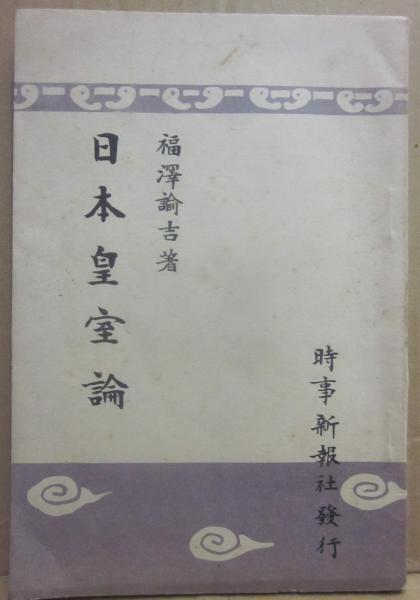 福澤諭吉著
日本皇室論
時事新報社發行